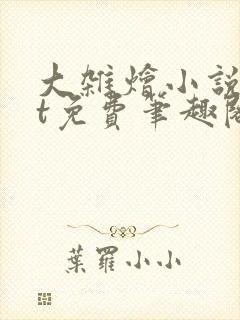 大雜燴小說
t免費筆趣閣
葉羅小小